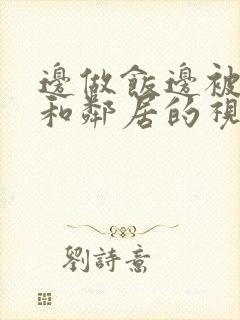 邊做飯邊被
和鄰居的視
劉詩意